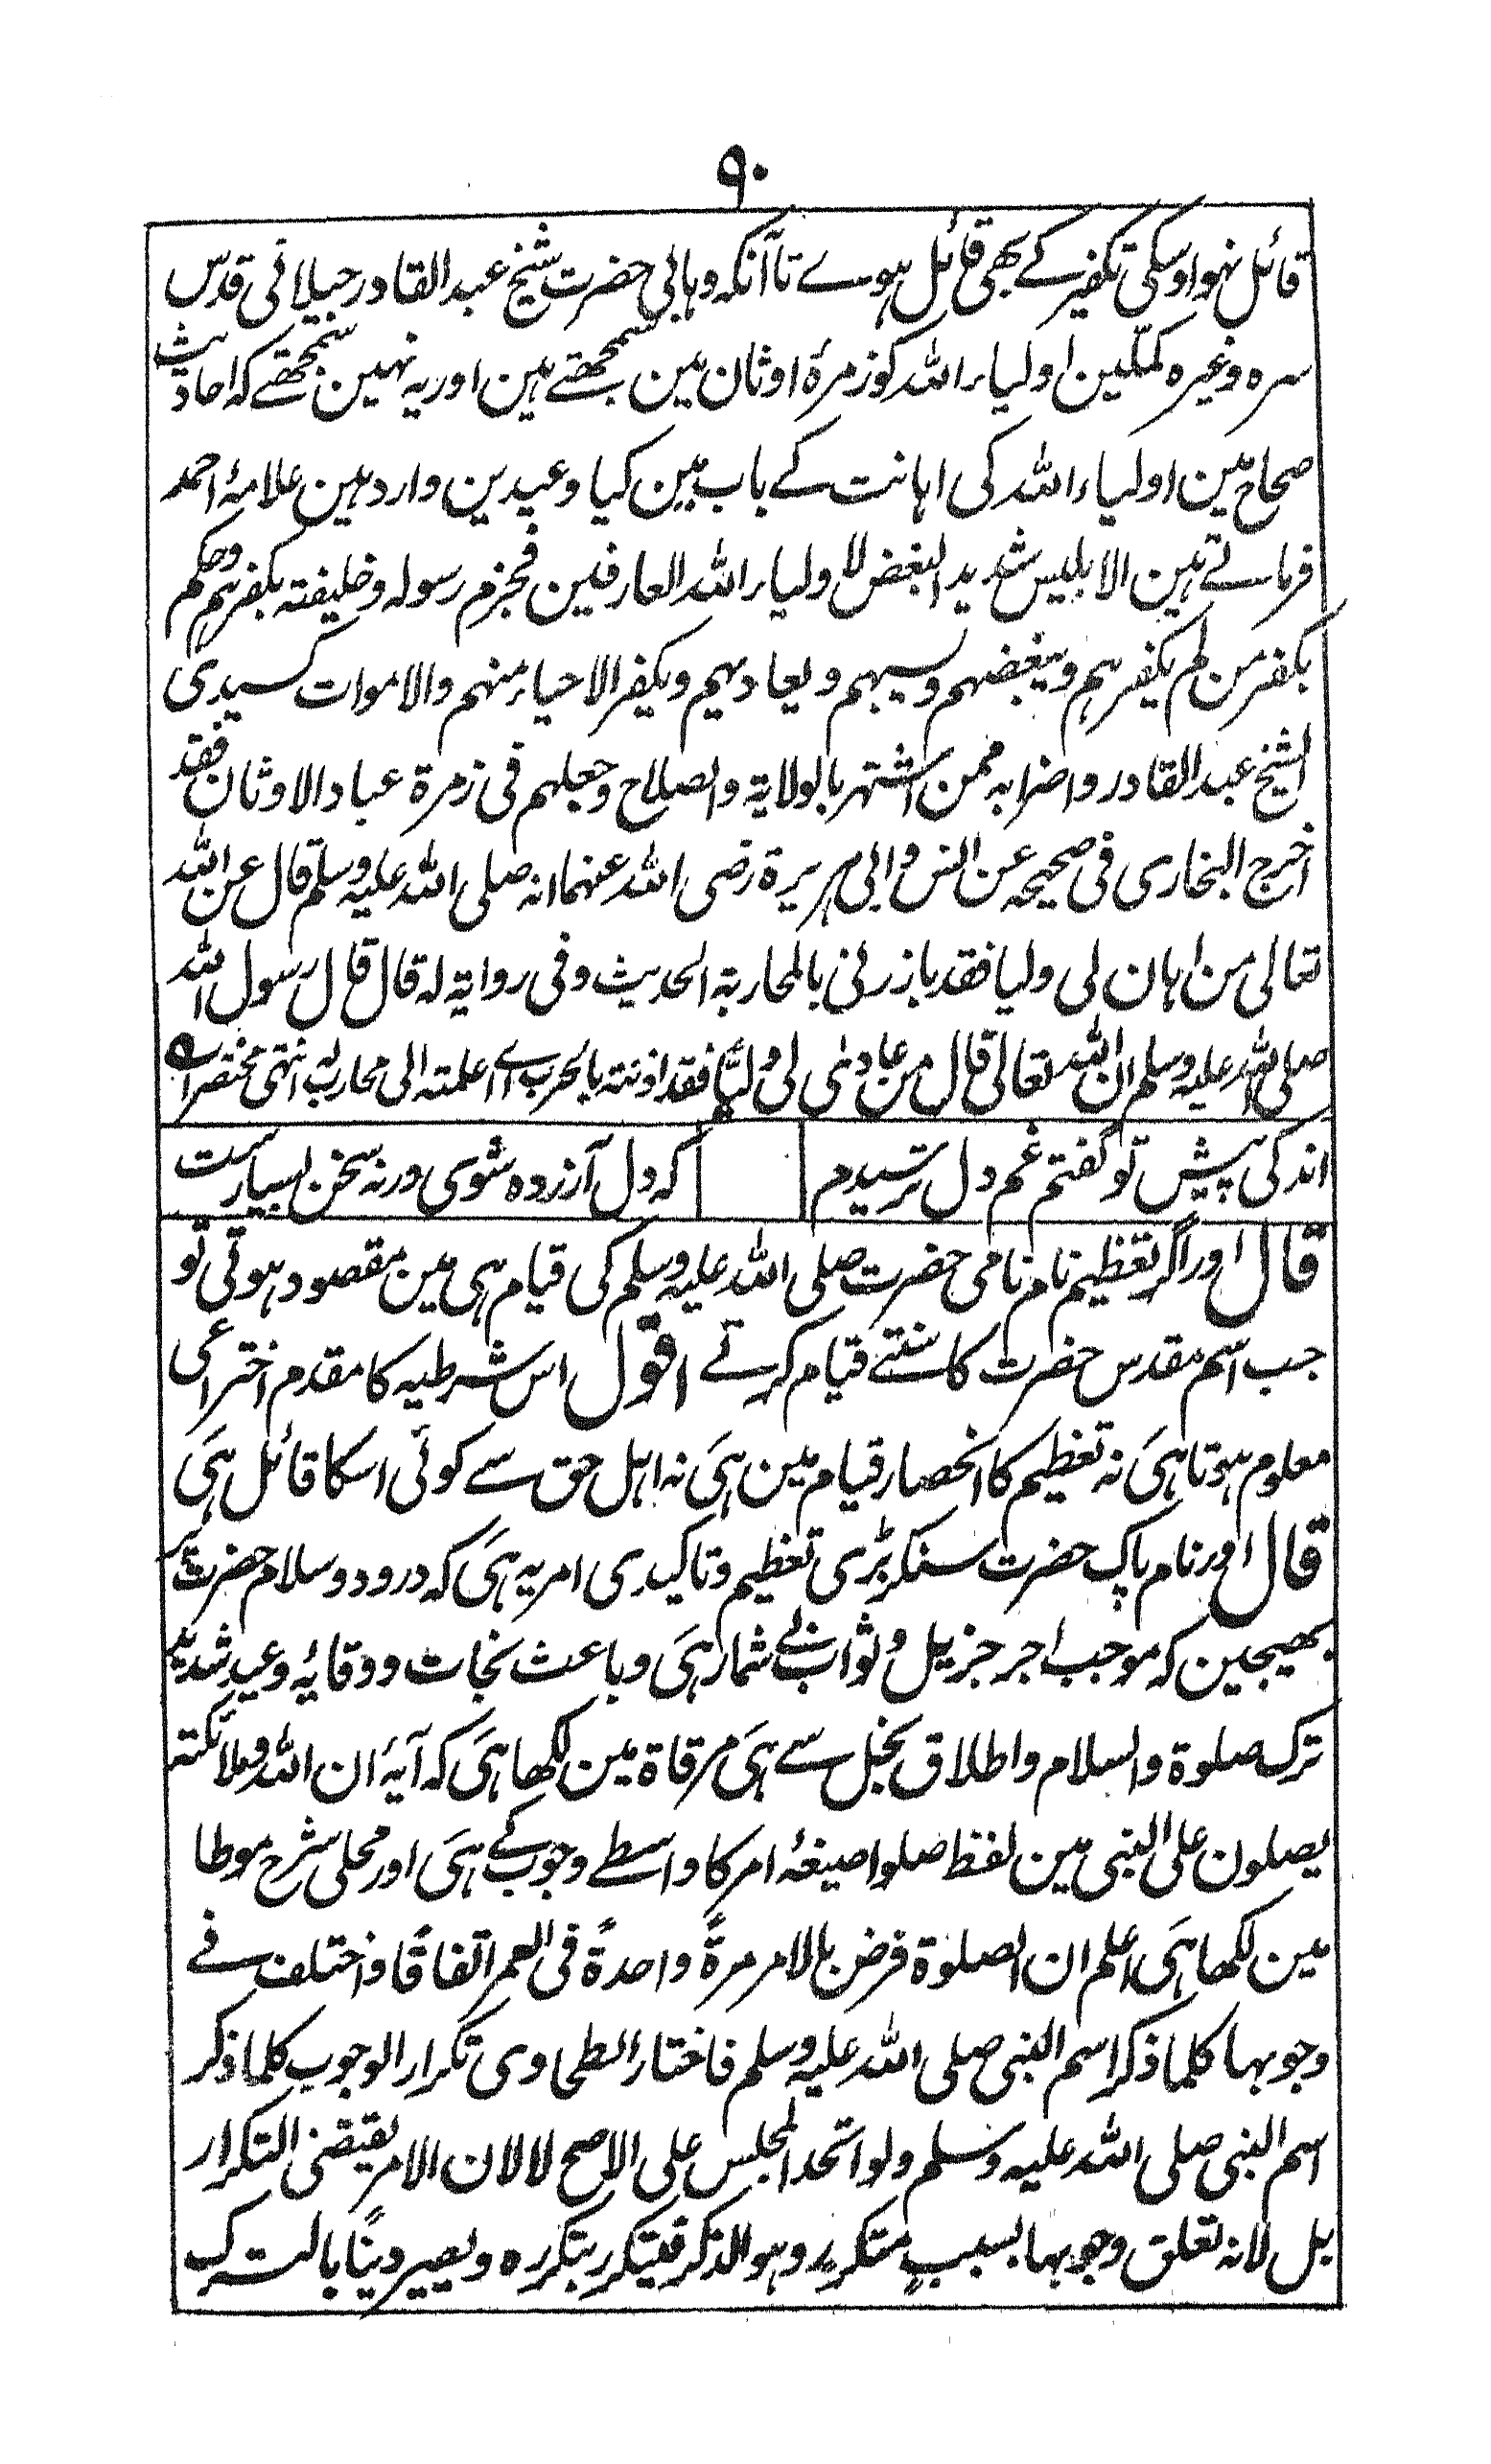 ٩٠
قائل نہوا وسکی تکفیر کے بھی قائل ہوے تاآنکہ وہابی حضرت شیخ عبد القادر جیلانی قدس
سرہ وغیرہ مکملین اولیاء اللہ کو زمرۂ اوثان مین سمجھتے ہین اور یہ نہین سمجھتے کہ احادیث
صحاح مین اولیاء اللہ کی اہانت کے باب مین کیا وعیدین وارد ہین علامۂ احمد
فرماتے ہین الابلیس شدید البغض للاولیاء اللہ العارفین فجزم رسولہ وخلیفتہ بکفرہم وحکم
بکفر من لم یکفرہم ویبغضہم ویسبہم ویعادیہم ویکفر الاحیاء منہم والاموات کسیدی
الشیخ عبد القادر واضرابہ ممن اشتہر بالولایۃ والصلاح وجعلہم فی زمرۃ عباد الاوثان فقد
اخرج البخاری فی صحیحہ عن انس وابی ہریرۃ رضی اللہ عنہما انہ صلی اللہ علیہ وسلم قال عن اللہ
تعالی من اہان لی ولیا فقد بازرنی بالمحاربۃ الحدیث وفی روایۃ لہ قال قال رسول اللہ
صلی اللہ علیہ وسلم ان اللہ تعالی قال من عادی لی ولیًّا فقد اذنتہ بالحرب اے اعلمتہ الی محارب لہ انتہی مختصرا ۵
اندکی پیش تو گفتم غم دل ترسیدم کہ دل آزردہ شوی ورنہ سخن بسیارست
قال اور اگر تعظیم نام نامی حضرت صلی اللہ علیہ وسلم کی قیام ہی مین مقصود ہوتی تو
جب اسم مقدس حضرت کا سنتے قیام کرتے اقول اس شرطیہ کا مقدم اختراعی
معلوم ہوتا ہی نہ تعظیم کا انحصار قیام مین ہی نہ اہل حق سے کوئی اسکا قائل ہی
قال اور نام پاک حضرت سنکر بڑی تعظیم وتاکیدی امر یہ ہی کہ درود وسلام حضرت پر
بھیجین کہ موجب اجر جزیل وثواب بے شمار ہی وباعث نجات ووقایۂ وعید شدید
ترک صلوۃ والسلام واطلاق بخل سے ہی مرقاۃ مین لکھا ہی کہ آیۂ ان اللہ وملائکتہ
یصلون علی النبی مین لفظ صلوا صیغۂ امر کا واسطے وجوب کے ہی اور محلی شرح موطا
مین لکھا ہی اعلم ان الصلوۃ فرض بالامر مرۃً واحدۃً فی العمر اتفاقًا واختلف فے
وجوبہا کلما ذکر اسم النبی صلی اللہ علیہ وسلم فاختار الطحاوی تکرار الوجوب کلما ذکر
اسم النبی صلی اللہ علیہ وسلم ولو اتحد المجلس علی الاصح لا لان الامر یقتضی التکرار
بل لانہ تعلق وجوبہا بسببٍ متکررٍ وہو الذکر فیتکرر بتکررہ ویصیر دینًا بالترک